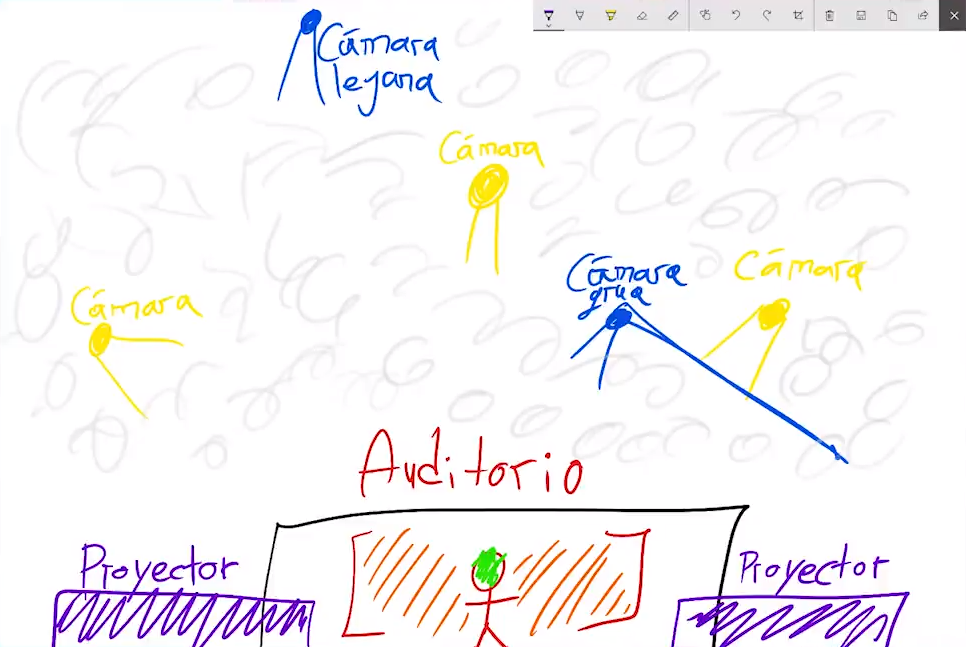 Cámara
leyana
Cámara
Cámara
grua
Cámara
Cámara
Auditorio
Proyector
Proyector